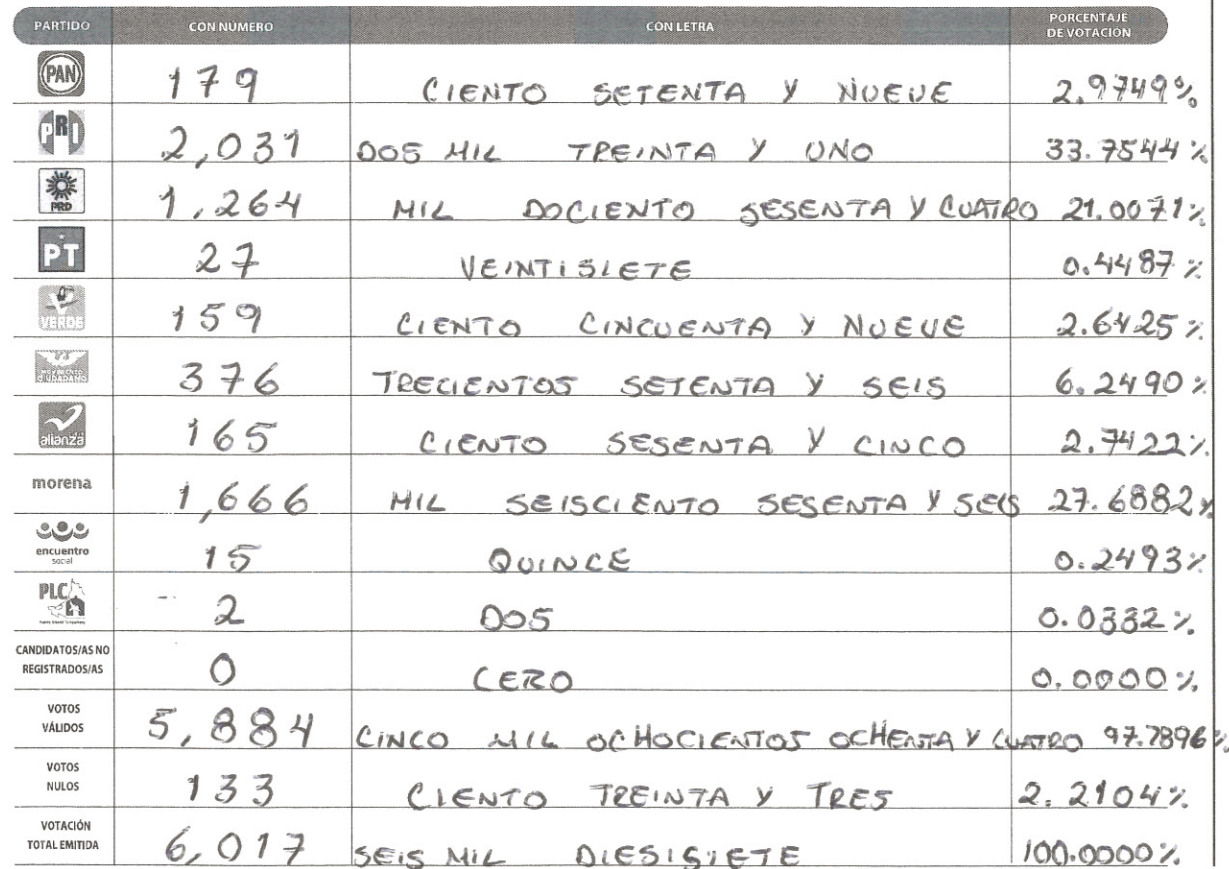 PARTIDO CON NÚMERO CON LETRA PORCENTAJE DE VOTACIÓN
PAN 179 CIENTO SETENTA Y NUEVE 2.9749%
PRI 2,031 DOS MIL TREINTA Y UNO 33.7544%
PRD 1,264 MIL DOCIENTO SESENTA Y CUATRO 21.0071%
PT 27 VEINTISIETE 0.4487%
VERDE 159 CIENTO CINCUENTA Y NUEVE 2.6425%
MOVIMIENTO CIUDADANO 376 TRECIENTOS SETENTA Y SEIS 6.2490%
alianza 165 CIENTO SESENTA Y CINCO 2.7422%
morena 1,666 MIL SEISCIENTO SESENTA Y SEIS 27.6882%
encuentro social 15 QUINCE 0.2493%
PLC 2 DOS 0.0332%
CANDIDATOS/AS NO REGISTRADOS/AS 0 CERO 0.0000%
VOTOS VÁLIDOS 5,884 CINCO MIL OCHOCIENTOS OCHENTA Y CUATRO 97.7896%
VOTOS NULOS 133 CIENTO TREINTA Y TRES 2.2104%
VOTACIÓN TOTAL EMITIDA 6,017 SEIS MIL DIESISIETE 100.0000%